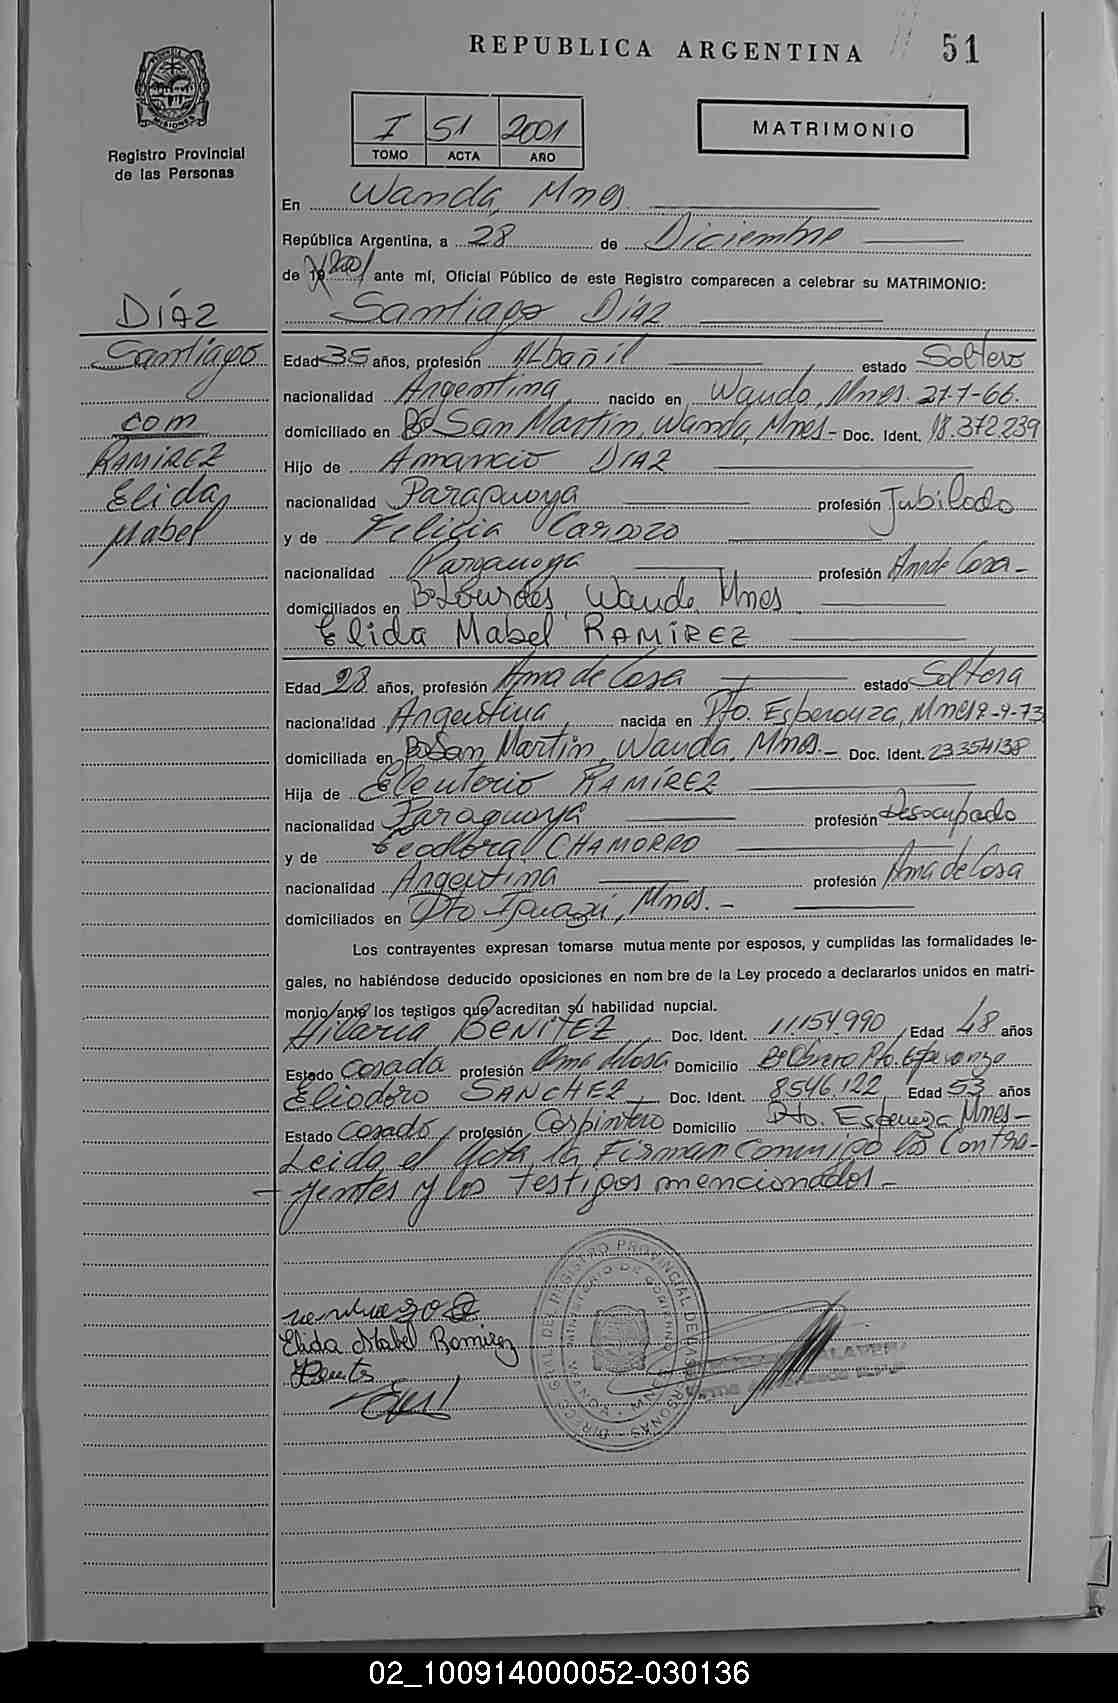 REPUBLICA ARGENTINA 51
Registro Provincial
de las Personas
I 51 2001
TOMO ACTA AÑO
MATRIMONIO
En Wanda, Mnes.
República Argentina, a 28 de Diciembre
de 19 2001 ante mí, Oficial Público de este Registro comparecen a celebrar su MATRIMONIO:
Santiago DÍAZ
DÍAZ
Santiago
com
RAMIREZ
Elida
Mabel
Edad 35 años, profesión Albañil estado Soltero
nacionalidad Argentina nacido en Wanda, Mnes. 21-7-66.
domiciliado en Bº San Martin, Wanda, Mnes - Doc. Ident. 18.372.239
Hijo de Amancio DIAZ
nacionalidad Paraguaya profesión Jubilado
y de Felicia Cardozo
nacionalidad Paraguaya profesión Ama de Casa -
domiciliados en Bº Lourdes, Wanda, Mnes
Elida Mabel RAMÍREZ
Edad 28 años, profesión Ama de Casa estado Soltera
nacionalidad Argentina, nacida en Pto. Esperanza, Mnes 9-73
domiciliada en Bº San Martin, Wanda, Mnes. - Doc. Ident. 23354138
Hija de Eleuterio RAMÍREZ
nacionalidad Paraguaya profesión Desocupado
y de Teodora CHAMORRO
nacionalidad Argentina profesión Ama de Casa
domiciliados en Pto Iguazú, Mnes. -
Los contrayentes expresan tomarse mutua mente por esposos, y cumplidas las formalidades le-
gales, no habiéndose deducido oposiciones en nom bre de la Ley procedo a declararlos unidos en matri-
monio ante los testigos que acreditan su habilidad nupcial.
Hilaria BENITEZ Doc. Ident. 11.154.990, Edad 48 años
Estado Casada profesión Ama de Casa Domicilio Bº Obrero Pto. Esperanza
Eliodoro SANCHEZ Doc. Ident. 8546.122 Edad 53 años
Estado Casado, profesión Carpintero Domicilio Pto. Esperanza Mnes -
Leida el Acta, la Firman Conmigo los Contra-
yentes y los testigos mencionados -
Elida Mabel Ramirez
02_100914000052-030136